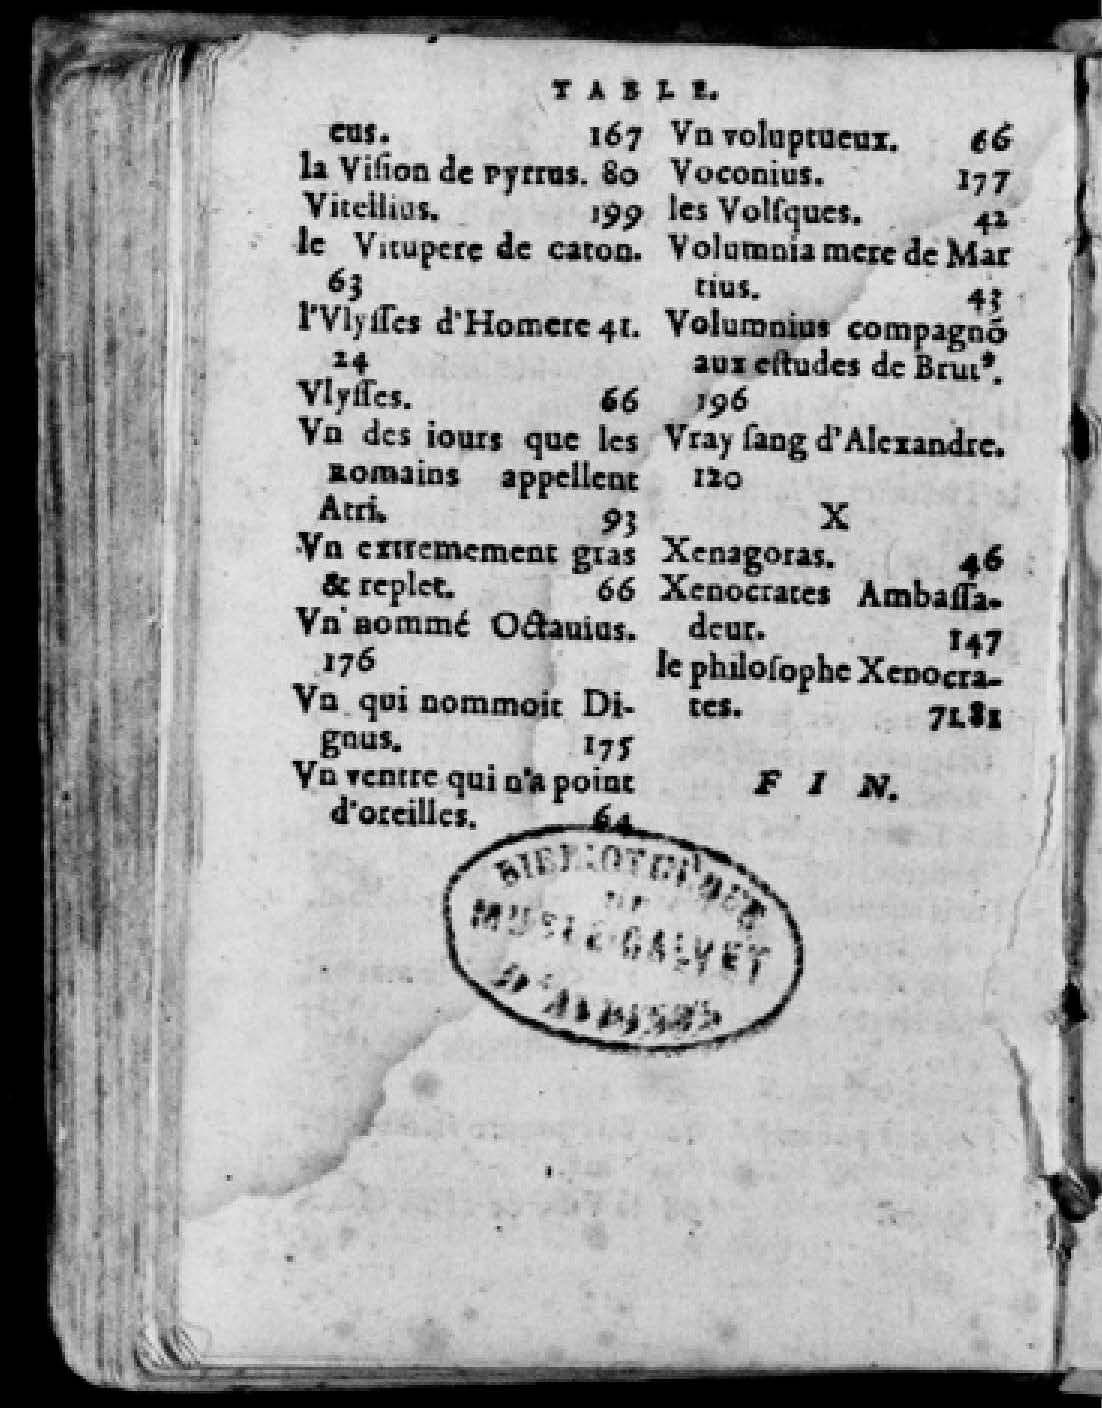 TABLE.
cus. 167
la Viſion de pyrrus. 80
Vitellius. 199
le Vitupere de caton.
63
l'Vlyſſes d'Homere 41.
24
Vlyſſes. 66
Vn des iours que les
Romains appellent
Atri. 93
Vn extremement gras
& replet. 66
Vn nommé Octauius.
176
Vn qui nommoit Di-
gnus. 175
Vn ventre qui n'a point
d'oreilles. 64
Vn voluptueux. 66
Voconius. 177
les Volſques. 42
Volumnia mere de Mar
tius. 43
Volumnius compagnõ
aux eſtudes de Brutꝰ.
196
Vray ſang d'Alexandre.
120
X
Xenagoras. 46
Xenocrates Ambaſſa-
deur. 147
le philoſophe Xenocra-
tes. 71.81
FIN.
BIBLIOTHÈQUE
DU
MUSÉE-CALVET
D'AVIGNON